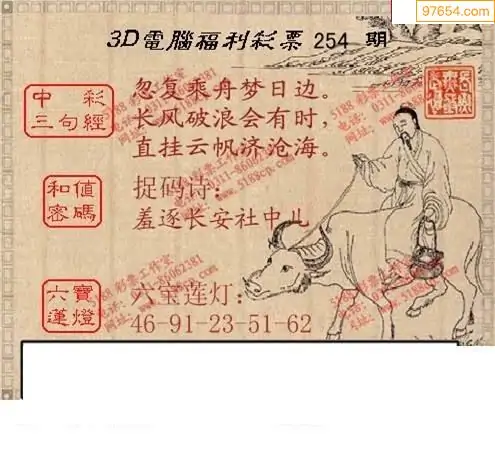 97654.com
3D電腦福利彩票 254 期
中彩三句經
忽复乘舟梦日边。
长风破浪会有时，
直挂云帆济沧海。
和值密碼
捉码诗：
羞逐长安社中儿
六寶蓮燈
六宝莲灯：
46-91-23-51-62
5188 彩票工作室
电话：0311-86062381
网址：www.5188cp.com